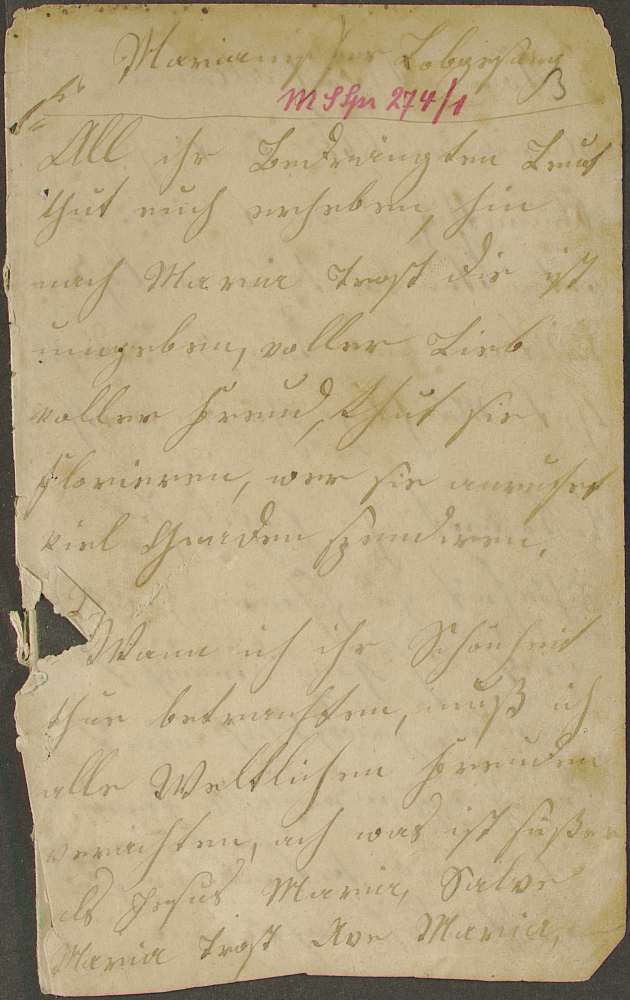 Marianischer Lobgesang
3
M S Spr 274/1
All ihr Bedrängten Leut
thut euch erheben, hin
nach Maria Trost die ist
umgeben, voller Lieb
voller Freud, thut sie
florieren, wer sie anrufet
viel Gnaden spendiren.
Wann ich ihr Schönheit
thue betrachten, muß ich
alle Weltlichen Freuden
verachten, ach was ist süßer
als Jesus Maria, Salve
Maria Trost Ave Maria,